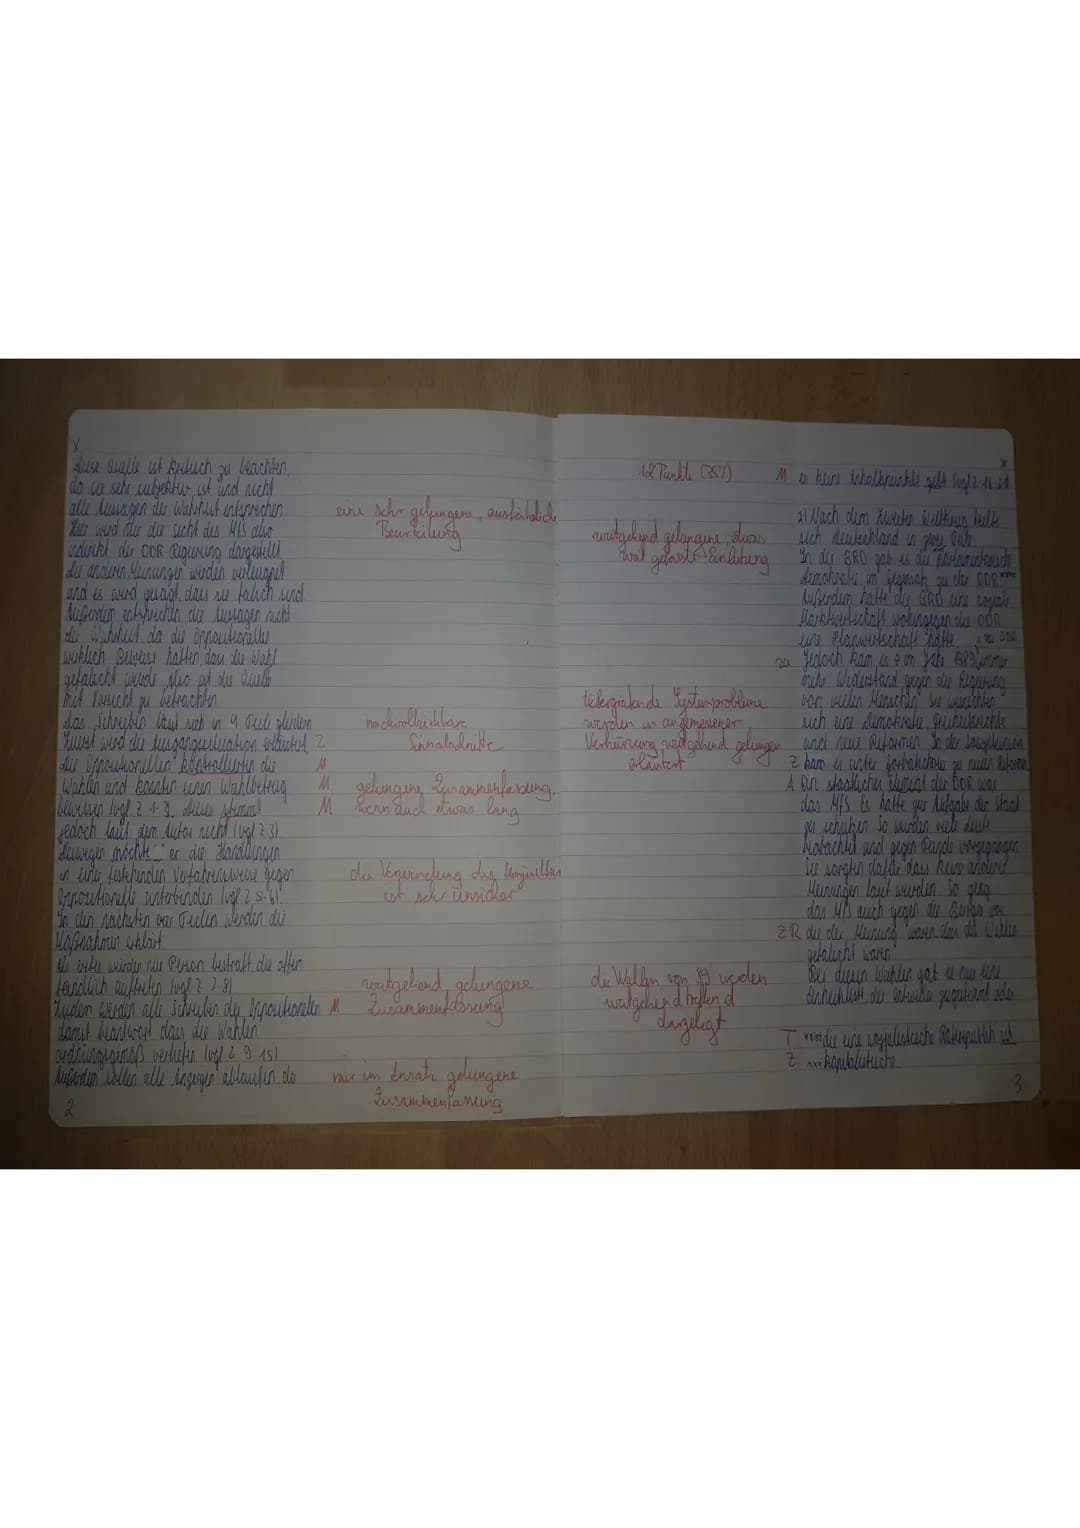 x
diese Quelle ist kritisch zu beachten,
da sie sehr subjektiv ist und nicht
alle Aussagen der Wahrheit entsprechen
Hier wird nur die Sicht des MfS also
indirekt der DDR-Regierung dargestellt
die andern Meinungen werden verleugnet
und es wird gesagt, dass sie falsch sind
Außerdem entsprechen die Aussagen nicht
der Wahrheit, da die Oppositionellen
wirklich Beweise hatten, dass die Wahl
gefälscht wurde also ist die Quelle
mit Vorsicht zu betrachten
das Schreiben lässt sich in 9 Teile gliedern
Zuerst wird die Ausgangssituation erläutert Z
die Oppositionellen kontrollierten die M
Wahlen und konnten einen Wahlbetrug M
beweisen (vgl Z 1-3). Dieses stimmt M
jedoch laut dem Autor nicht (vgl Z 3).
Deswegen möchte er die Handlungen
in eine feststehenden Verfahrensweise gegen
Oppositionelle unterbinden (vgl Z 5-6).
In den nächsten vier Teilen werden die
Maßnahmen erklärt
Als erstes würden nur Person bestraft, die offen
feindlich auftreten (vgl Z 7 8)
Zudem werden alle Schreiben der Oppositionellen M
damit beantwort dass die Wahlen
ordnungsgemäß verliefen (vgl Z 9 15)
Außerdem sollen alle Anzeigen ablaufen, da
2
eine sehr gelungene, ausführliche
Beurteilung
nachvollziehbare
Sinnabschnitte
gelungene Zusammenfassung,
wenn auch etwas lang
die Begründung des
ist sehr unsicher
weitgehend gelungene
Zusammenfassung
nur im Ansatz gelungene
Zusammenfassung
12 Punkte (35%)
weitgehend gelungene, etwas
weit gefasste Einleitung
tiefergreifende Systemprobleme
werden in angemessener
Verkürzung weitgehend gelungen
erläutert
die Wahlen von 89' werden
weitgehend treffend
dargelegt
x
M es keine Inhaltspunkte gebt (vgl Z 16-21
2) Nach dem Zweiten Weltkrieg teilte
sich Deutschland in zwei Teile.
In der BRD gab es die parlamentarische
Demokratie im Gegensatz zu der DDR
Außerdem hatte die BRD eine soziale
Marktwirtschaft, wohingegen die DDR
eine Planwirtschaft hatte.
Jedoch kam es im Jahr 1989 immer
mehr Widerstand gegen die Regierung
von vielen Menschen. Sie wünschten
sich eine Demokratie, Freiheitsrechte
und neue Reformen. In der Sowjetunion
Z kam es unter Gorbatschow zu neuen Reformen
A Ein staatlicher Element der DDR war
das MfS. Es hatte zur Aufgabe den Staat
zu schützen. So wurden viele Leute
beobachtet und gegen Feinde vorgegangen
Sie sorgten dafür dass keine anderen
Meinungen laut wurden. So ging
das MfS auch gegen die Bürger vor
Z R die der Meinung waren, dass die Wahlen
gefälscht waren
Bei diesen Wahlen gab es nur eine
Einheitsliste, der entweder zugestimmt oder
T die eine sozialistische Räterepublik ist
Z kapitalistische
3